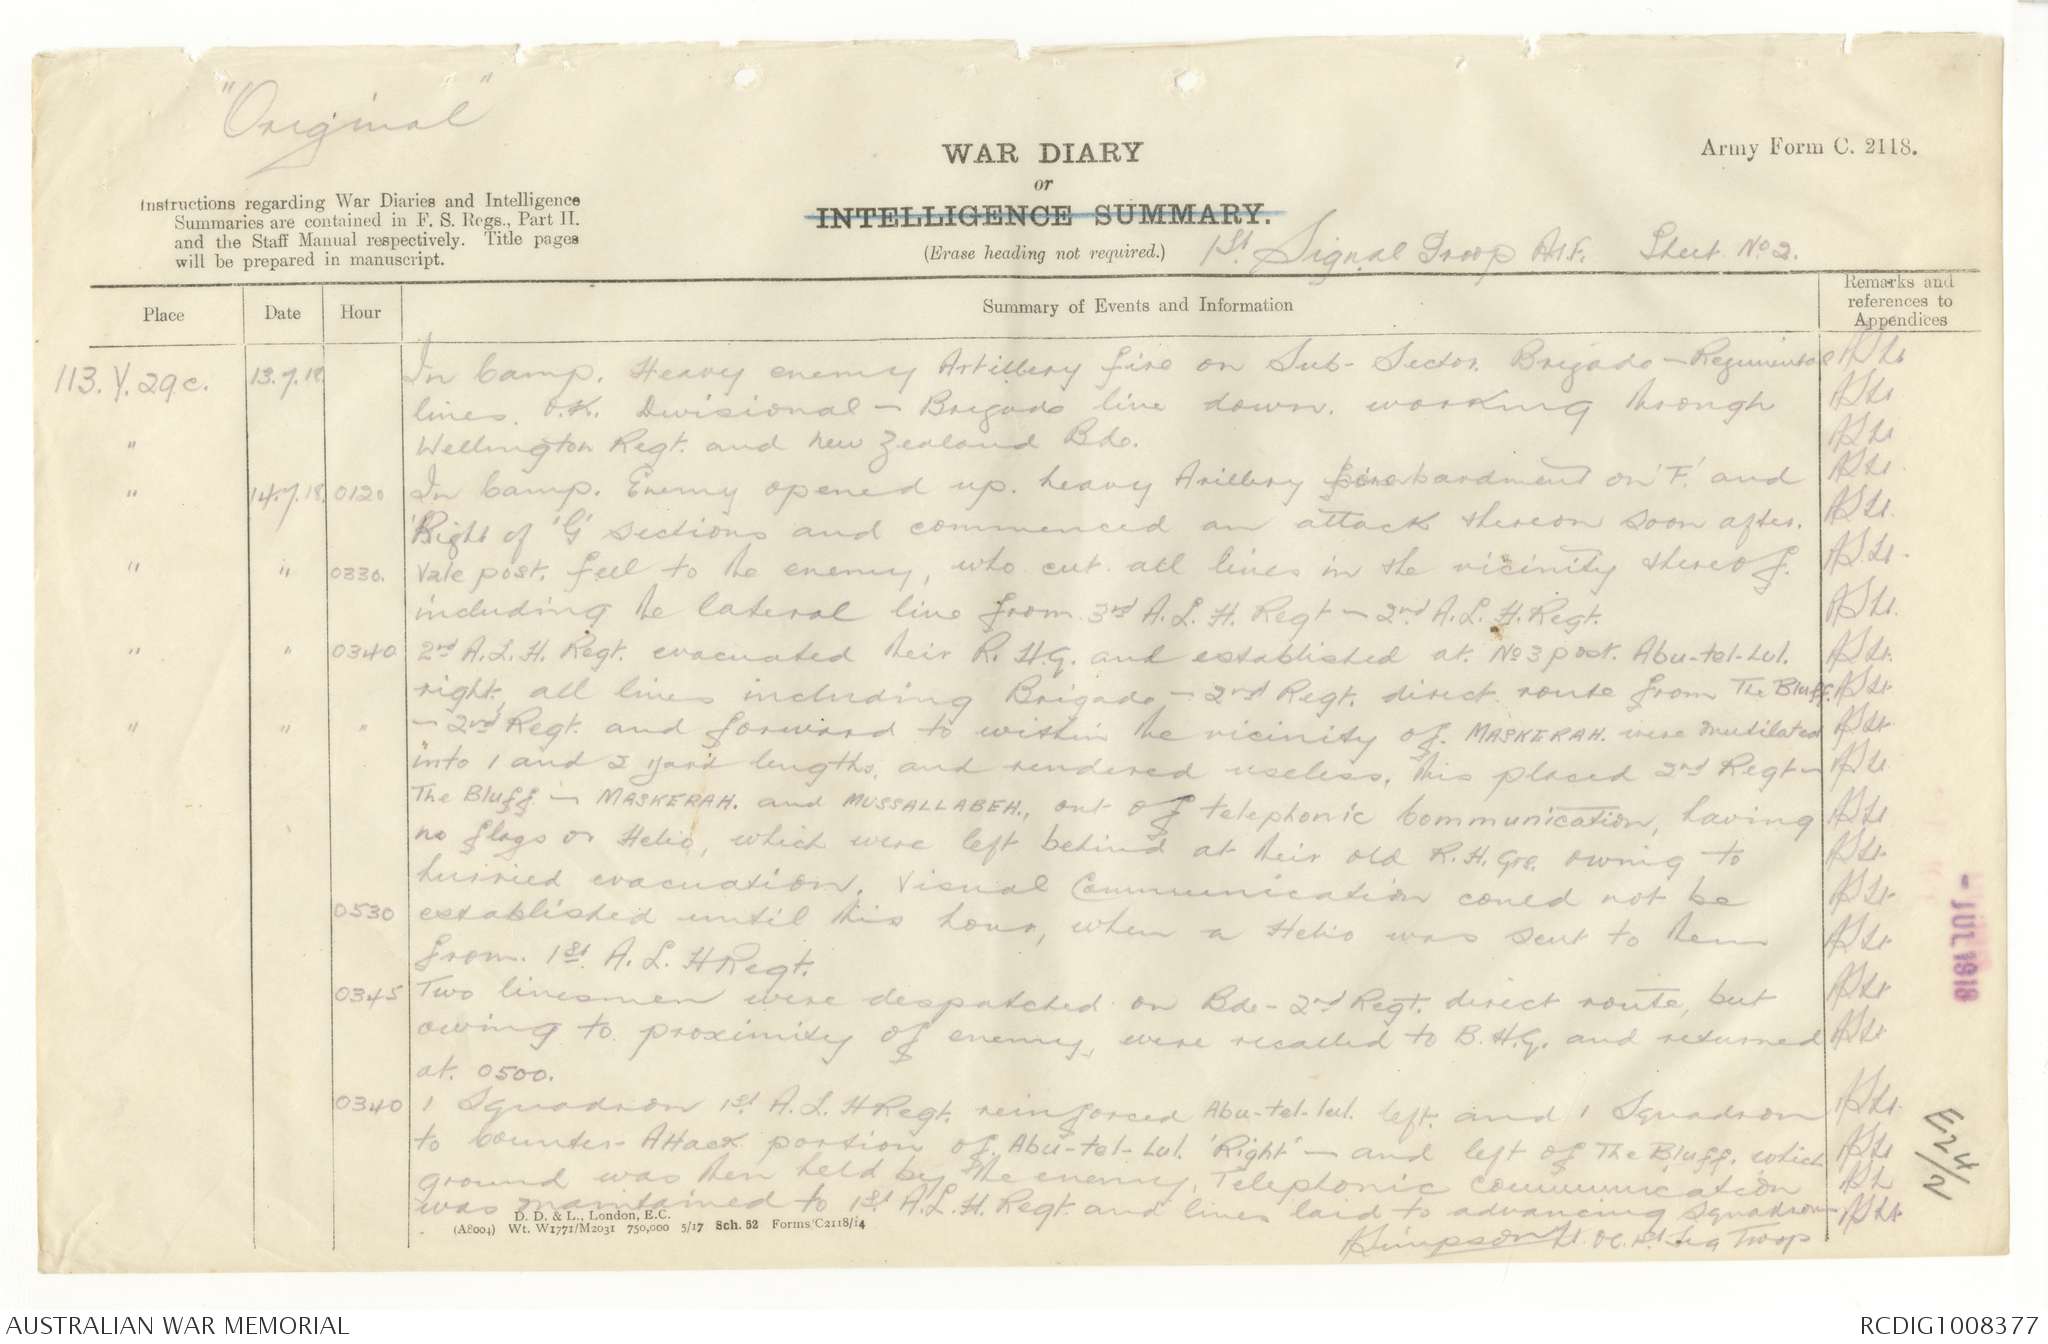 "Original"
WAR DIARY
or
INTELLIGENCE SUMMARY.
(Erase heading not required.)
Army Form C. 2118.
Instructions regarding War Diaries and Intelligence
Summaries are contained in F. S. Regs., Part II.
and the Staff Manual respectively. Title pages
will be prepared in manuscript.
1st. Signal Troop A.I.F. Sheet No 2.
Place Date Hour Summary of Events and Information Remarks and
references to
Appendices
113. Y. 29c. 13.7.18. In Camp. Heavy enemy Artillery fire on Sub-Sector. Brigade - Regimental
lines O.K. Divisional - Brigade line down. working through
" Wellington Regt. and New Zealand Bde.
" 14.7.18. 0120 In Camp. Enemy opened up heavy Arillery bombardment on 'F.' and
'Right of 'G' sections and commenced an attack thereon soon after.
" " 0330. Vale post. fell to the enemy, who cut all lines in the vicinity thereof.
including the lateral line from 3rd A.L.H. Regt - 2nd A.L.H. Regt.
" " 0340 2nd A.L.H. Regt. evacuated their R.H.Q. and established at No 3 post. Abu-tel-lul.
right, all lines including Brigade - 2nd Regt. direct route from The Bluff.
" " " - 2nd Regt. and forward to within the vicinity of MASKERAH. were mutilated
into 1 and 2 yard lengths, and rendered useless, this placed 2nd Regt -
The Bluff - MASKERAH. and MUSSALLABEH., out of telephonic communication, having
no flags or Helio, which were left behind at their old R.H.Qrs. owing to
hurried evacuation. Visual Communication could not be
0530 established until this hour, when a Helio was sent to them
from 1st. A.L.H Regt.
0345 Two linesmen were despatched on Bde - 2nd Regt. direct route, but
owing to proximity of enemy, were recalled to B.H.Q. and returned
at 0500.
0340 1 Squadron 1st A.L.H Regt. reinforced Abu-tel-lul. left. and 1 Squadron
to Counter-Attack portion of Abu-tel-lul. 'Right' - and left of The Bluff. which
ground was then held by the enemy. Telephonic communication
was maintained to 1st A.L.H. Regt. and lines laid to advancing squadrons
Simpson Lt. OC. 1st Sig Troop
D. D. & L., London, E.C.
(A8004) Wt. W1771/M2031 750,000 5/17 Sch. 52 Forms C2118/14
- JUL 1918
E24/2
AUSTRALIAN WAR MEMORIAL
RCDIG1008377